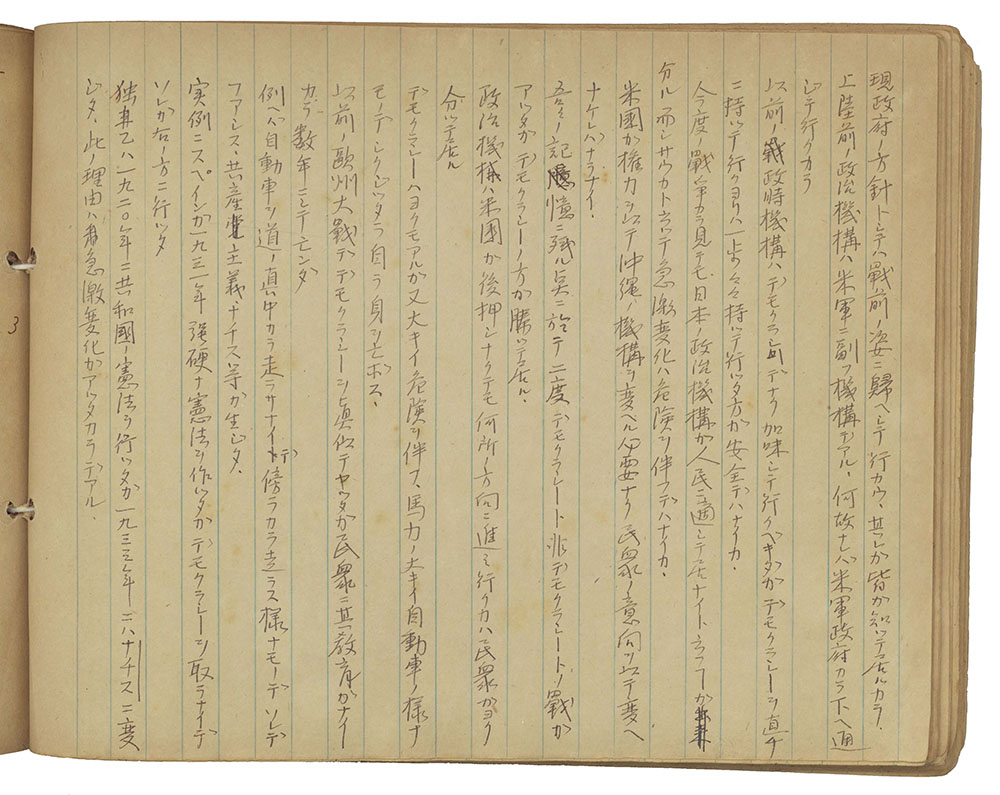 現政府ノ方針トシテハ戰前ノ姿ニ歸ヘシテ行カウ、其レが皆が知ツテ居ルカラ、
上陸前ノ政治機構ハ米軍ニ副フ機構デアル、何故ナレバ米軍政府カラ下ヘ通
ジテ行クカラ
以前ノ戰政時機構ハデモクラシーデナク加味シテ行クベキダガデモクラシーヲ直チ
ニ持ツテ行クヨリハ一歩々々持ツテ行ツタ方が安全デハナイカ、
今度ノ戰争カラ見テモ日本ノ政治機構が人民ニ適シテ居ナイト云フ事が
分ル而シサウカト云ツテ急激変化ハ危険ヲ伴フデハナイカ、
米國が権力ヲ以テ沖縄ノ機構ヲ変ヘル必要ナク民衆ノ意向ヲ以テ変ヘ
ナケレバナラナイ、
吾々ノ記憶ニ残ル点ニ於テ二度デモクラシート非デモクラシートノ戰が
アツタがデモクラシーノ方が勝ツテ居ル、
政治機構ハ米國が後押シナクテモ何所ノ方向ニ進ミ行クカハ民衆がヨク
分ツテ居ル
デモクラシーハヨクモアルが又大キイ危険ヲ伴フ、馬力ノ大キイ自動車ノ様ナ
モノデシクジツタラ自ラ身ヲ亡ボス、
以前ノ歐州大戰デデモクラシーヲ眞似テヤツタが民衆ニ其ノ教育がナイ
カラ数年ニシテ亡ンダ
例ヘバ自動車ヲ道ノ真中カラ走ラサナイデ傍ラカラ走ラス様ナモノデソレデ
フアシス、共産主義、ナチス等が生ジタ、
実例ニスペインが一九三一年強硬ナ憲法ヲ作ツタがデモクラシーヲ取ラナイデ
ソレが右ノ方ニ行ツタ
独逸ハ一九二〇年ニ共和國ノ憲法ヲ行ツタが一九三三年ニハナチスニ変
ジタ、此ノ理由ハ急激変化がアツタカラデアル、
3